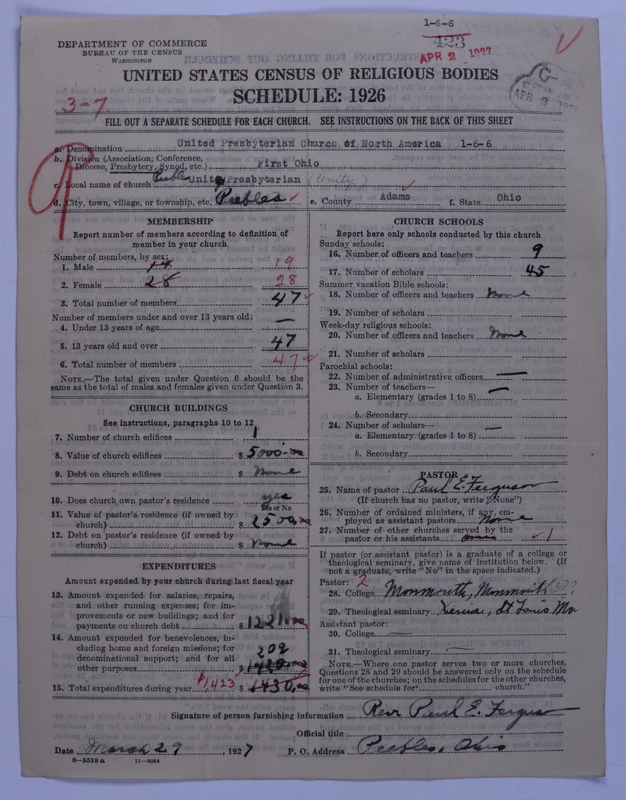 1-6-6
423
DEPARTMENT OF COMMERCE
BUREAU OF THE CENSUS
WASHINGTON
APR 2 1927
UNITED STATES CENSUS OF RELIGIOUS BODIES
SCHEDULE: 1926
3-7
FILL OUT A SEPARATE SCHEDULE FOR EACH CHURCH. SEE INSTRUCTIONS ON THE BACK OF THIS SHEET
a. Denomination United Presbyterian Church of North America 1-6-6
b. Division (Association, Conference, Diocese, Presbytery, Synod, etc.) First Ohio
c. Local name of church Peebles Unity Presbyterian (Unity)
d. City, town, village, or township, etc. Peebles e. County Adams f. State Ohio
MEMBERSHIP
Report number of members according to definition of
member in your church
Number of members, by sex:
1. Male 19
2. Female 28 28
3. Total number of members 47
Number of members under and over 13 years old:
4. Under 13 years of age —
5. 13 years old and over 47
6. Total number of members 47
NOTE.—The total given under Question 6 should be the
same as the total of males and females given under Question 3.
CHURCH BUILDINGS
See instructions, paragraphs 10 to 12
7. Number of church edifices 1
8. Value of church edifices $ 5000.00
9. Debt on church edifices $ None
10. Does church own pastor's residence yes
Yes or No
11. Value of pastor's residence (if owned by
church) $ 2500.00
12. Debt on pastor's residence (if owned by
church) $ None
EXPENDITURES
Amount expended by your church during last fiscal year
13. Amount expended for salaries, repairs,
and other running expenses; for im-
provements or new buildings; and for
payments on church debt $ 1221.00
14. Amount expended for benevolences, in-
cluding home and foreign missions; for
denominational support; and for all
other purposes 202
15. Total expenditures during year $1,423 $ 1430.00
CHURCH SCHOOLS
Report here only schools conducted by this church
Sunday schools:
16. Number of officers and teachers 9
17. Number of scholars 45
Summer vacation Bible schools:
18. Number of officers and teachers None
19. Number of scholars
Week-day religious schools:
20. Number of officers and teachers None
21. Number of scholars
Parochial schools:
22. Number of administrative officers —
23. Number of teachers— —
a. Elementary (grades 1 to 8)
b. Secondary
24. Number of scholars— —
a. Elementary (grades 1 to 8)
b. Secondary
PASTOR
25. Name of pastor Paul E. Ferguson
(If church has no pastor, write "None")
26. Number of ordained ministers, if any, em-
ployed as assistant pastors None
27. Number of other churches served by the
pastor or his assistants 1
If pastor (or assistant pastor) is a graduate of a college or
theological seminary, give name of institution below. (If
not a graduate, write "No" in the space indicated.)
Pastor: 2
28. College Monmouth, Monmouth
29. Theological seminary Xenia, St. Louis Mo
Assistant pastor:
30. College —
31. Theological seminary —
NOTE.—Where one pastor serves two or more churches,
Questions 28 and 29 should be answered only on the schedule
for one of the churches; on the schedules for the other churches,
write "See schedule for church."
Signature of person furnishing information Rev. Paul E. Ferguson
Official title
Date March 29 1927 P. O. Address Peebles, Ohio
8-5518 a 11-9264